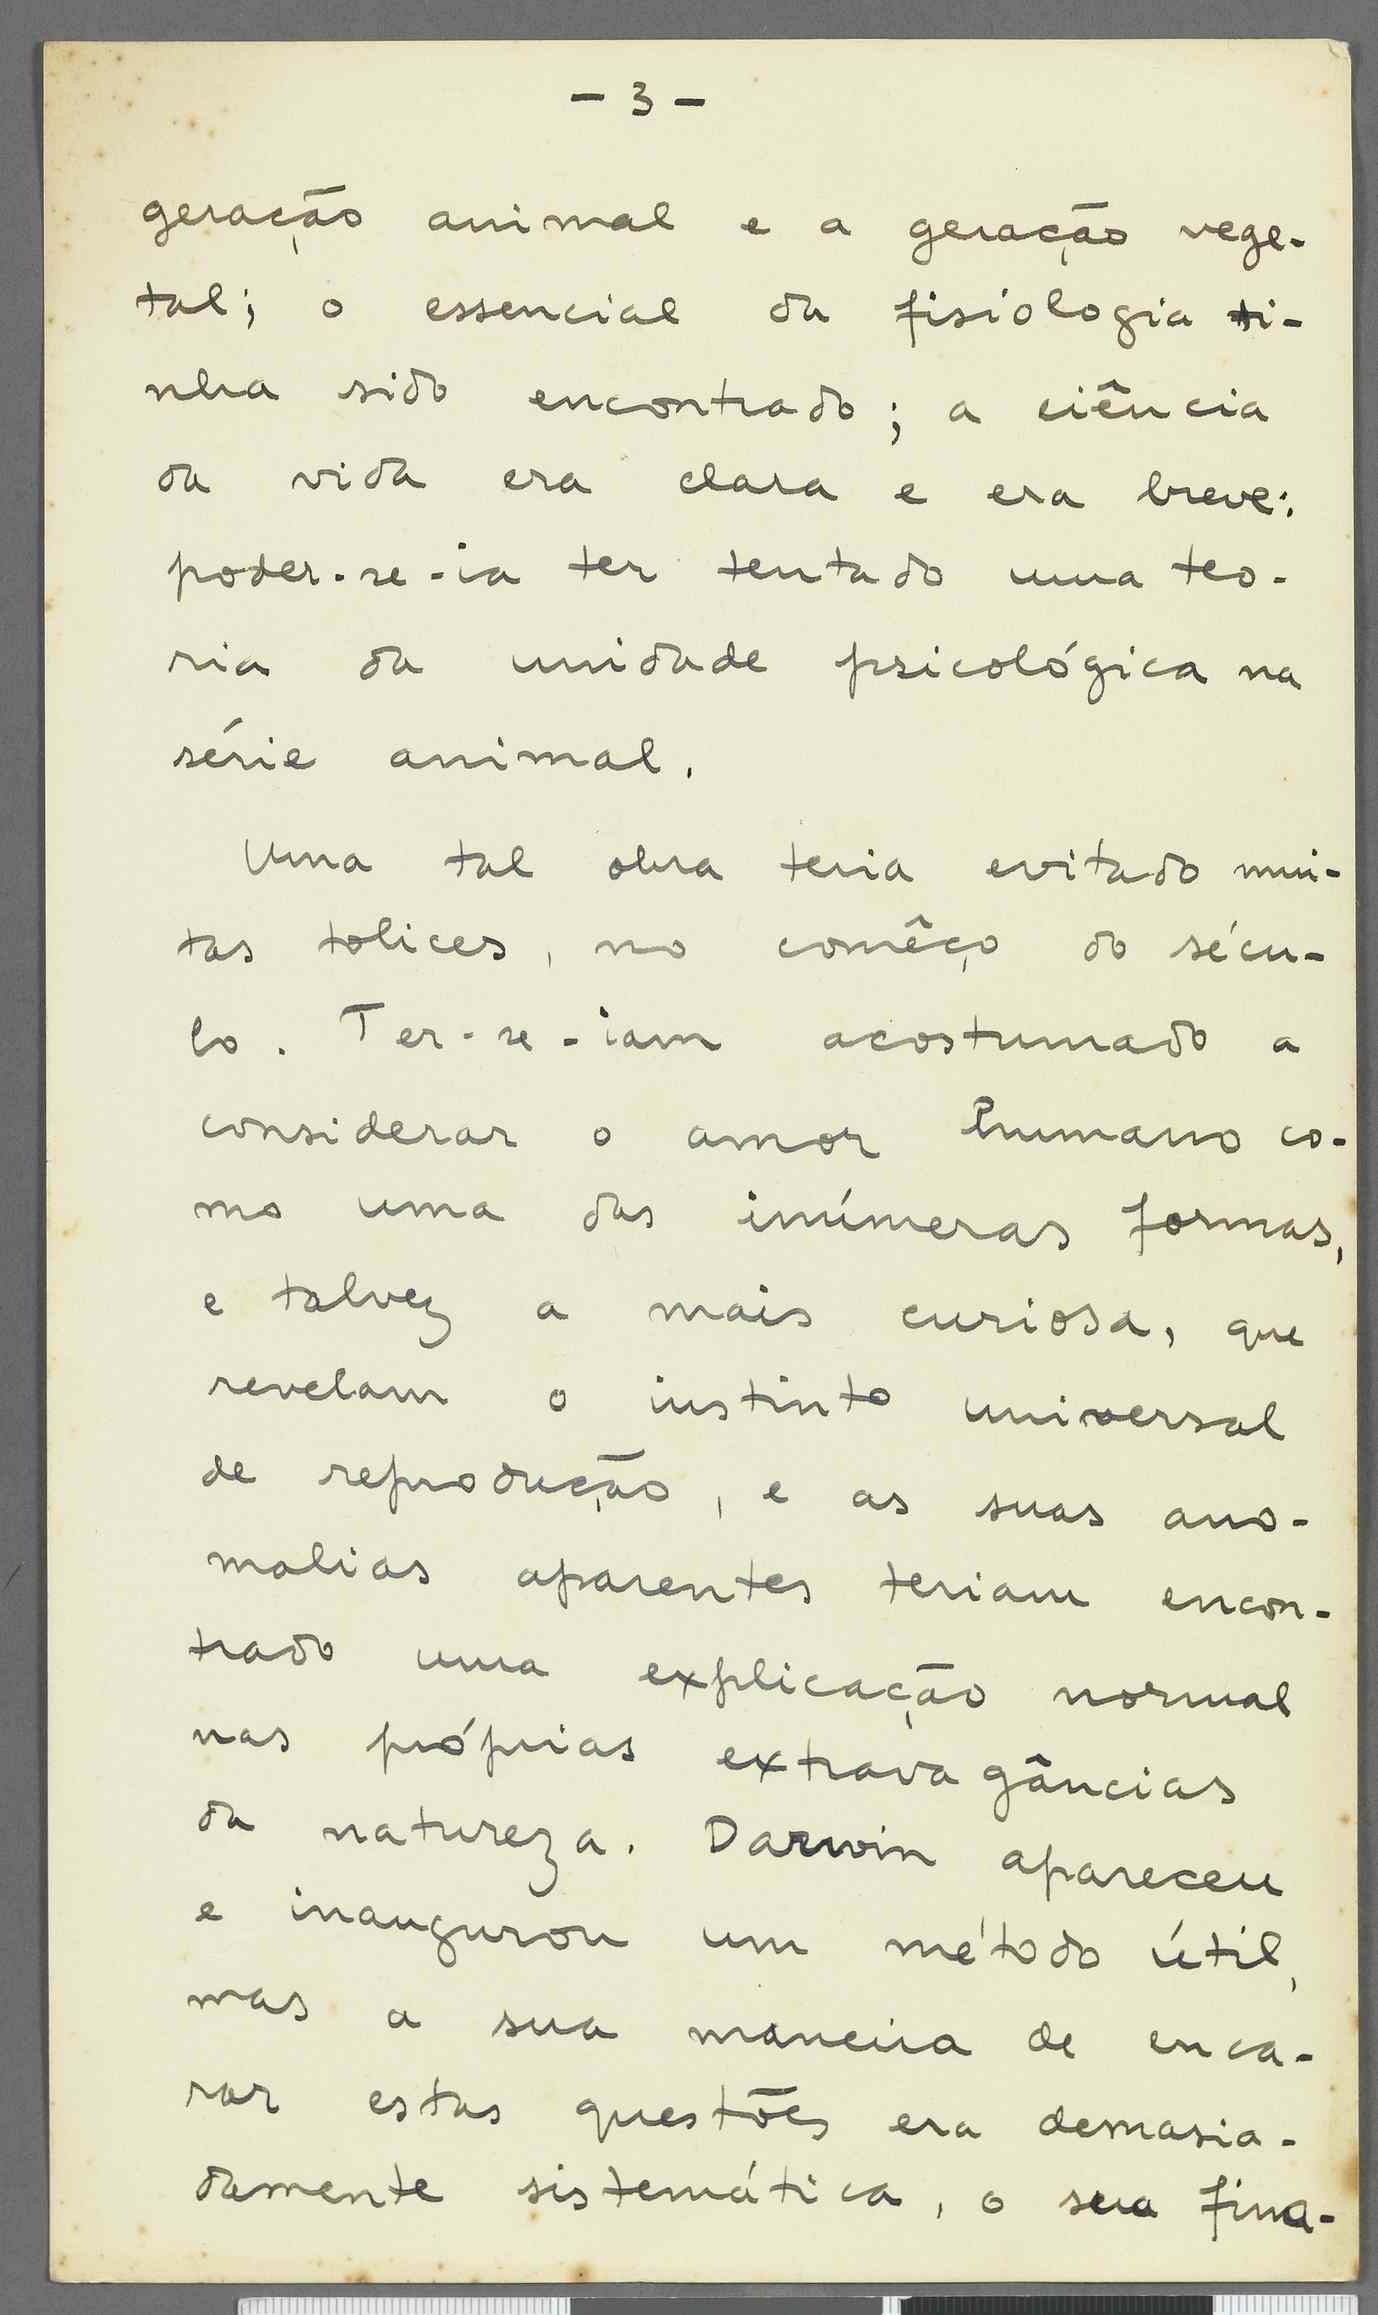 - 3 -
geração animal e a geração vege-
tal; o essencial da fisiologia ti-
nha sido encontrado; a ciência
da vida era clara e era breve:
poder-se-ia ter tentado uma teo-
ria da unidade psicológica na
série animal.
Uma tal obra teria evitado mui-
tas tolices, no comêço do sécu-
lo. Ter-se-iam acostumado a
considerar o amor humano co-
mo uma das inúmeras formas,
e talvez a mais curiosa, que
revelam o instinto universal
de reprodução, e as suas ano-
malias aparentes teriam encon-
trado uma explicação normal
nas próprias extravagâncias
da natureza. Darwin apareceu
e inaugurou um método útil,
mas a sua maneira de enca-
rar estas questões era demasia-
damente sistemática, o sua fina-